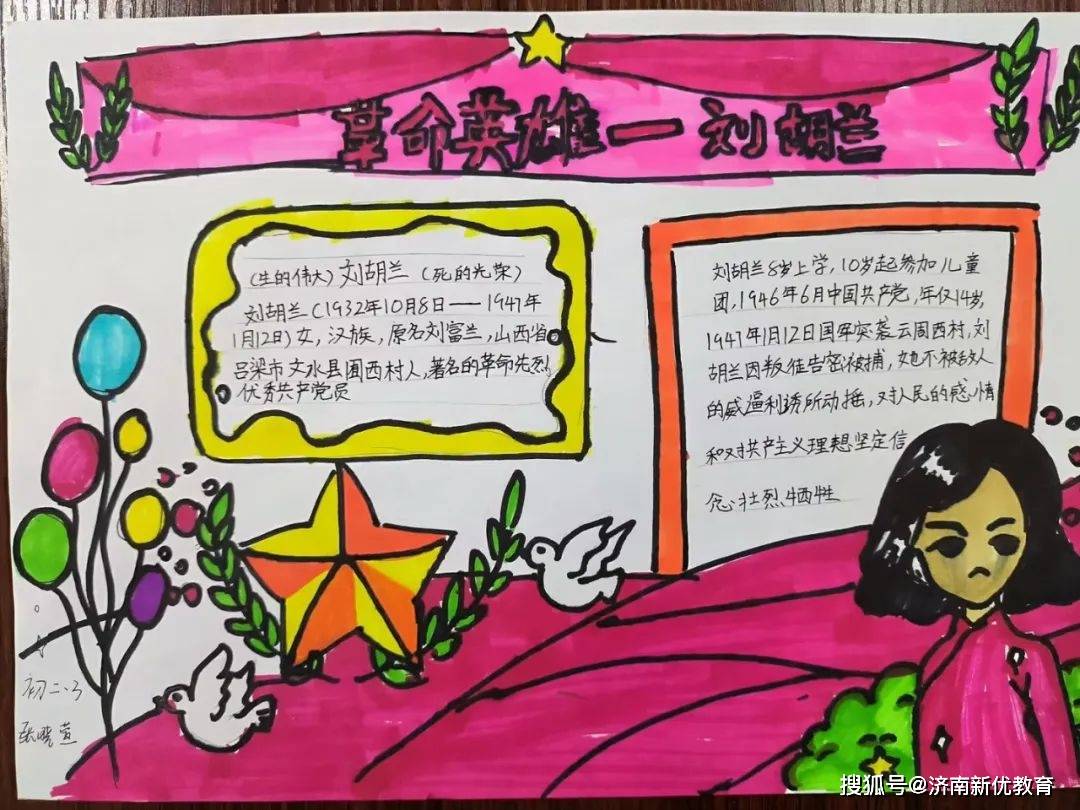 革命英雄一刘胡兰
(生的伟大)刘胡兰(死的光荣)
刘胡兰(1932年10月8日——1947年
1月12日)女,汉族,原名刘富兰,山西省
吕梁市文水县圐西村人,著名的革命先烈
优秀共产党员
刘胡兰8岁上学,10岁起参加儿童
团,1946年6月中国共产党,年仅14岁,
1947年1月12日国军突袭云周西村,刘
胡兰因叛徒告密被捕,她不被敌人
的威逼利诱所动摇,对人民的感情
和对共产主义理想坚定信
念壮烈牺牲
初二.3
张晓萱
搜狐号@济南新优教育